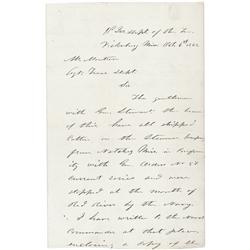 Hd Qrs Dept of the Tenn.
Vicksburg Miss Oct 6th 1863
Mr. Mellen
Agt. Treas Dept
Sir
The gentlemen
with Genl. Stewart the bearer
of this, have all shipped
Cotton on the Steamer
from Natchez Miss in Conform-
ity with Gen. Orders No 57
current series and were
stopped at the mouth of
Red River by the Navy.
I have written to the Naval
Commander at that place,
enclosing a copy of the